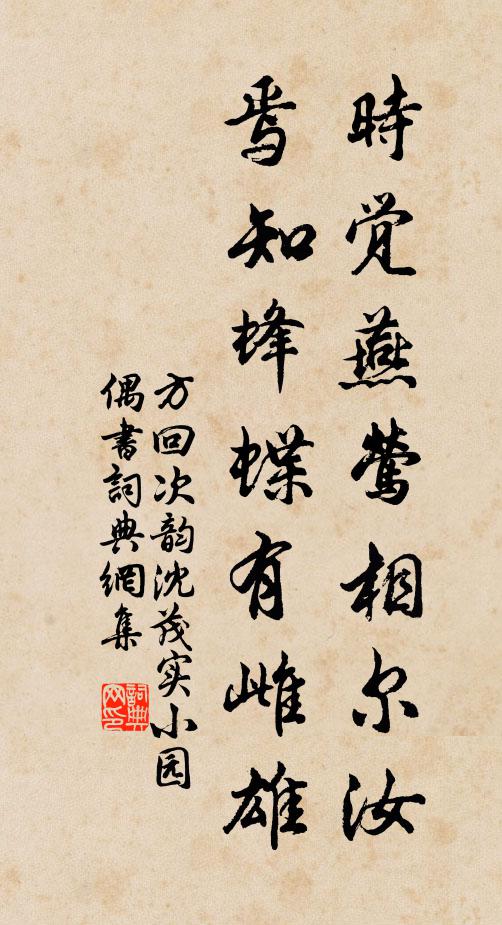 時觉燕莺相尔汝
焉知蜂蝶有雌雄
方回次韵沈茂实小园
偶書詞典網集
詞典网印